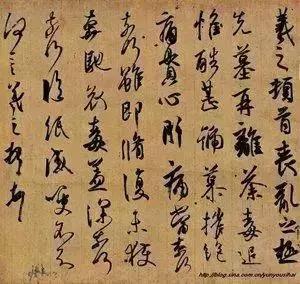 羲之頓首喪亂之極
先墓再離荼毒追
惟酷甚號慕摧絕
痛貫心肝痛當奈何
奈何雖即脩復未獲
奔馳哀毒益深奈何
奈何臨紙感哽不知
何言羲之頓首頓首
http://blog.sina.com.cn/yunyousihai